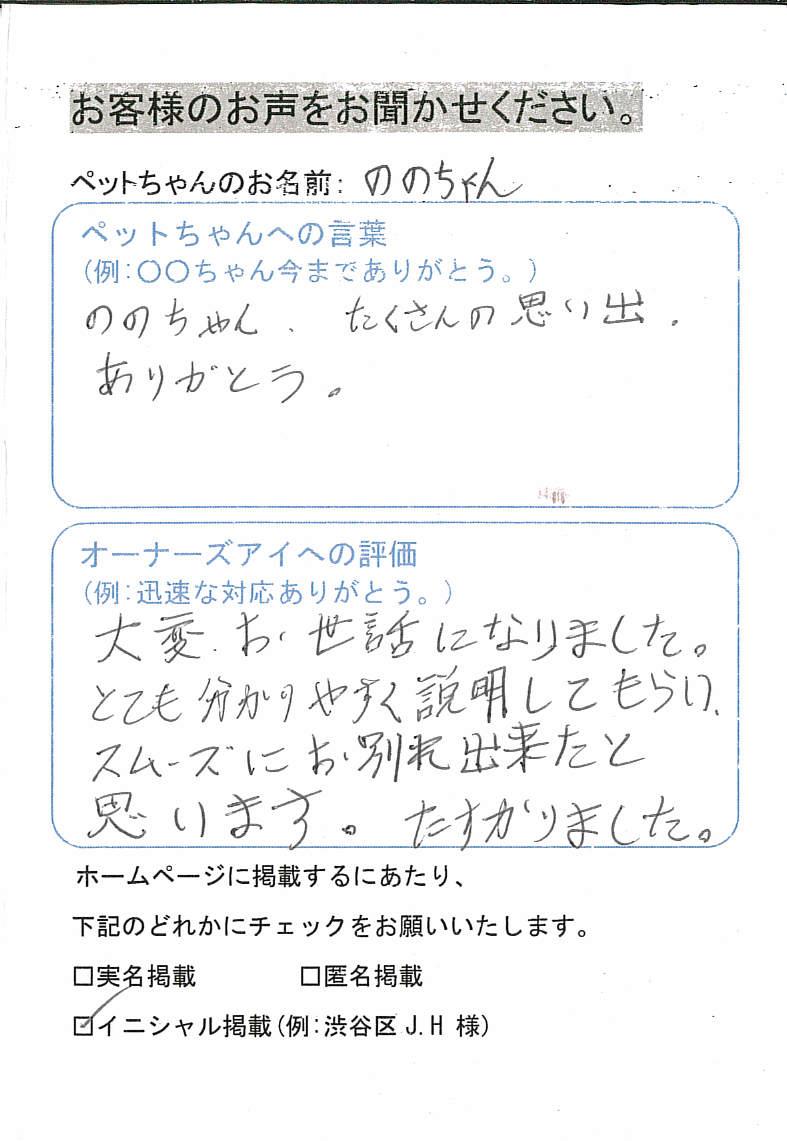 お客様のお声をお聞かせください。
ペットちゃんのお名前: ののちゃん
ペットちゃんへの言葉
(例:〇〇ちゃん今までありがとう。)
ののちゃん、たくさんの思い出、
ありがとう。
オーナーズアイへの評価
(例:迅速な対応ありがとう。)
大変お世話になりました。
とても分かりやすく説明してもらい、
スムーズにお別れ出来たと
思います。たすかりました。
ホームページに掲載するにあたり、
下記のどれかにチェックをお願いいたします。
□実名掲載 □匿名掲載
☑イニシャル掲載(例:渋谷区 J.H 様)